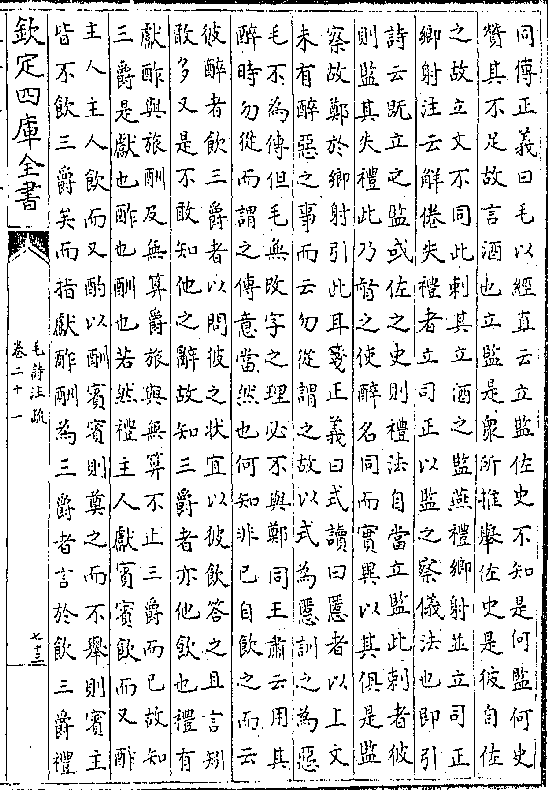 同傳正義曰毛以經直云立監佐史不知是何監何史
贊其不足故言酒也立監是衆所推舉佐史是彼自佐
之故立文不同此刺其立酒之監燕禮鄉射並立司正
鄉射注云解倦失禮者立司正以監之察儀法也即引
詩云既立之監或佐之史則禮法自當立監此刺者彼
則監其失禮此乃督之使醉名同而實異以其俱是監
察故鄭於鄉射引此耳箋正義曰式讀曰慝者以上文
未有醉惡之事而云勿從謂之故以式為慝訓之為惡
毛不為傳但毛無改字之理必不與鄭同王肅云用其
醉時勿從而謂之傳意當然也何知非已自飲之而云
彼醉者飲三爵者以問彼之狀宜以彼飲答之且言矧
敢多又是不敢知他之辭故知三爵者亦他飲也禮有
獻酢與旅酬及無算爵旅與無算不止三爵而已故知
三爵是獻也酢也酬也若然禮主人獻賓賓飲而又酢
主人主人飲而又酌以酬賓賓則奠之而不舉則賓主
皆不飲三爵矣而指獻酢酬為三爵者言於飲三爵禮
欽定四庫全書
毛詩注疏
卷二十一
七十三